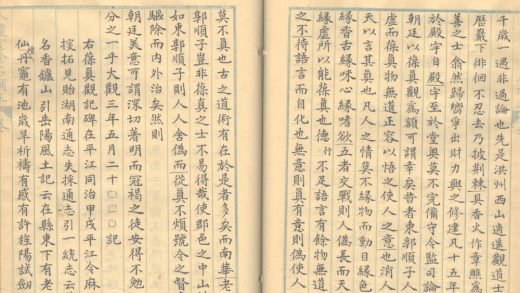 千歲一遇非過論也先是洪州西山逍遙觀道士
歷巖下徘徊不忍去乃披荆棘具香火作章醮為
善之士翕然歸嚮爭出財力與之修建凡十五年
於殿宇自殿宇至於堂奥莫不完備守令監司論
朝廷以葆真觀爲額可謂幸矣昔者東郭順子人
虛而葆真物無道正容以悟之使人之意也消人
天以言其真也凡人之情莫不緣物而動目緣色
緣香舌緣味心緣嗜欲五者交戰則人偽長而天
緣虛所以能葆真也德行不足語言有餘物無道
之不待語言而自化也無意則真有意則偽使人
莫不真也古之道術有在於是者多矣而南華老
郭順子豈非葆真之士不易得哉使郡邑之中山
如東郭順子則人人舍偽而從真不煩號令之督
驅除而内外治矣然則
朝廷美意可謂深切著明而冠褐之徒安得不勉
分之一乎大觀三年五月二十□□□□記
右葆真觀記碑在平江同治甲戌平江令麻
掞拓見貽湖南通志失採通志引一統志云
名香爐山引岳陽風土記云在縣東下有老
仙丹竈有池歲旱祈禱有感有許旌陽試劒